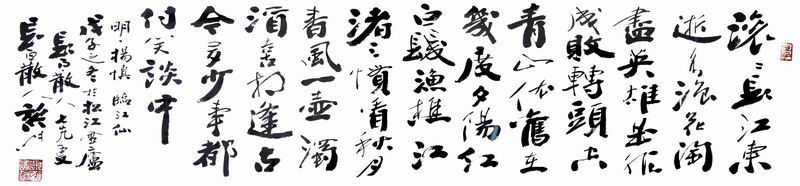 滚〻長江東
逝水浪花淘
盡英雄是非
成敗轉頭空
青山依舊在
幾度夕陽紅
白髮漁樵江
渚上慣看秋月
春風一壺濁
酒喜相逢古
今多少事都
付笑談中
明楊慎臨江仙
戊子之冬於松江
散人七九叟
散人